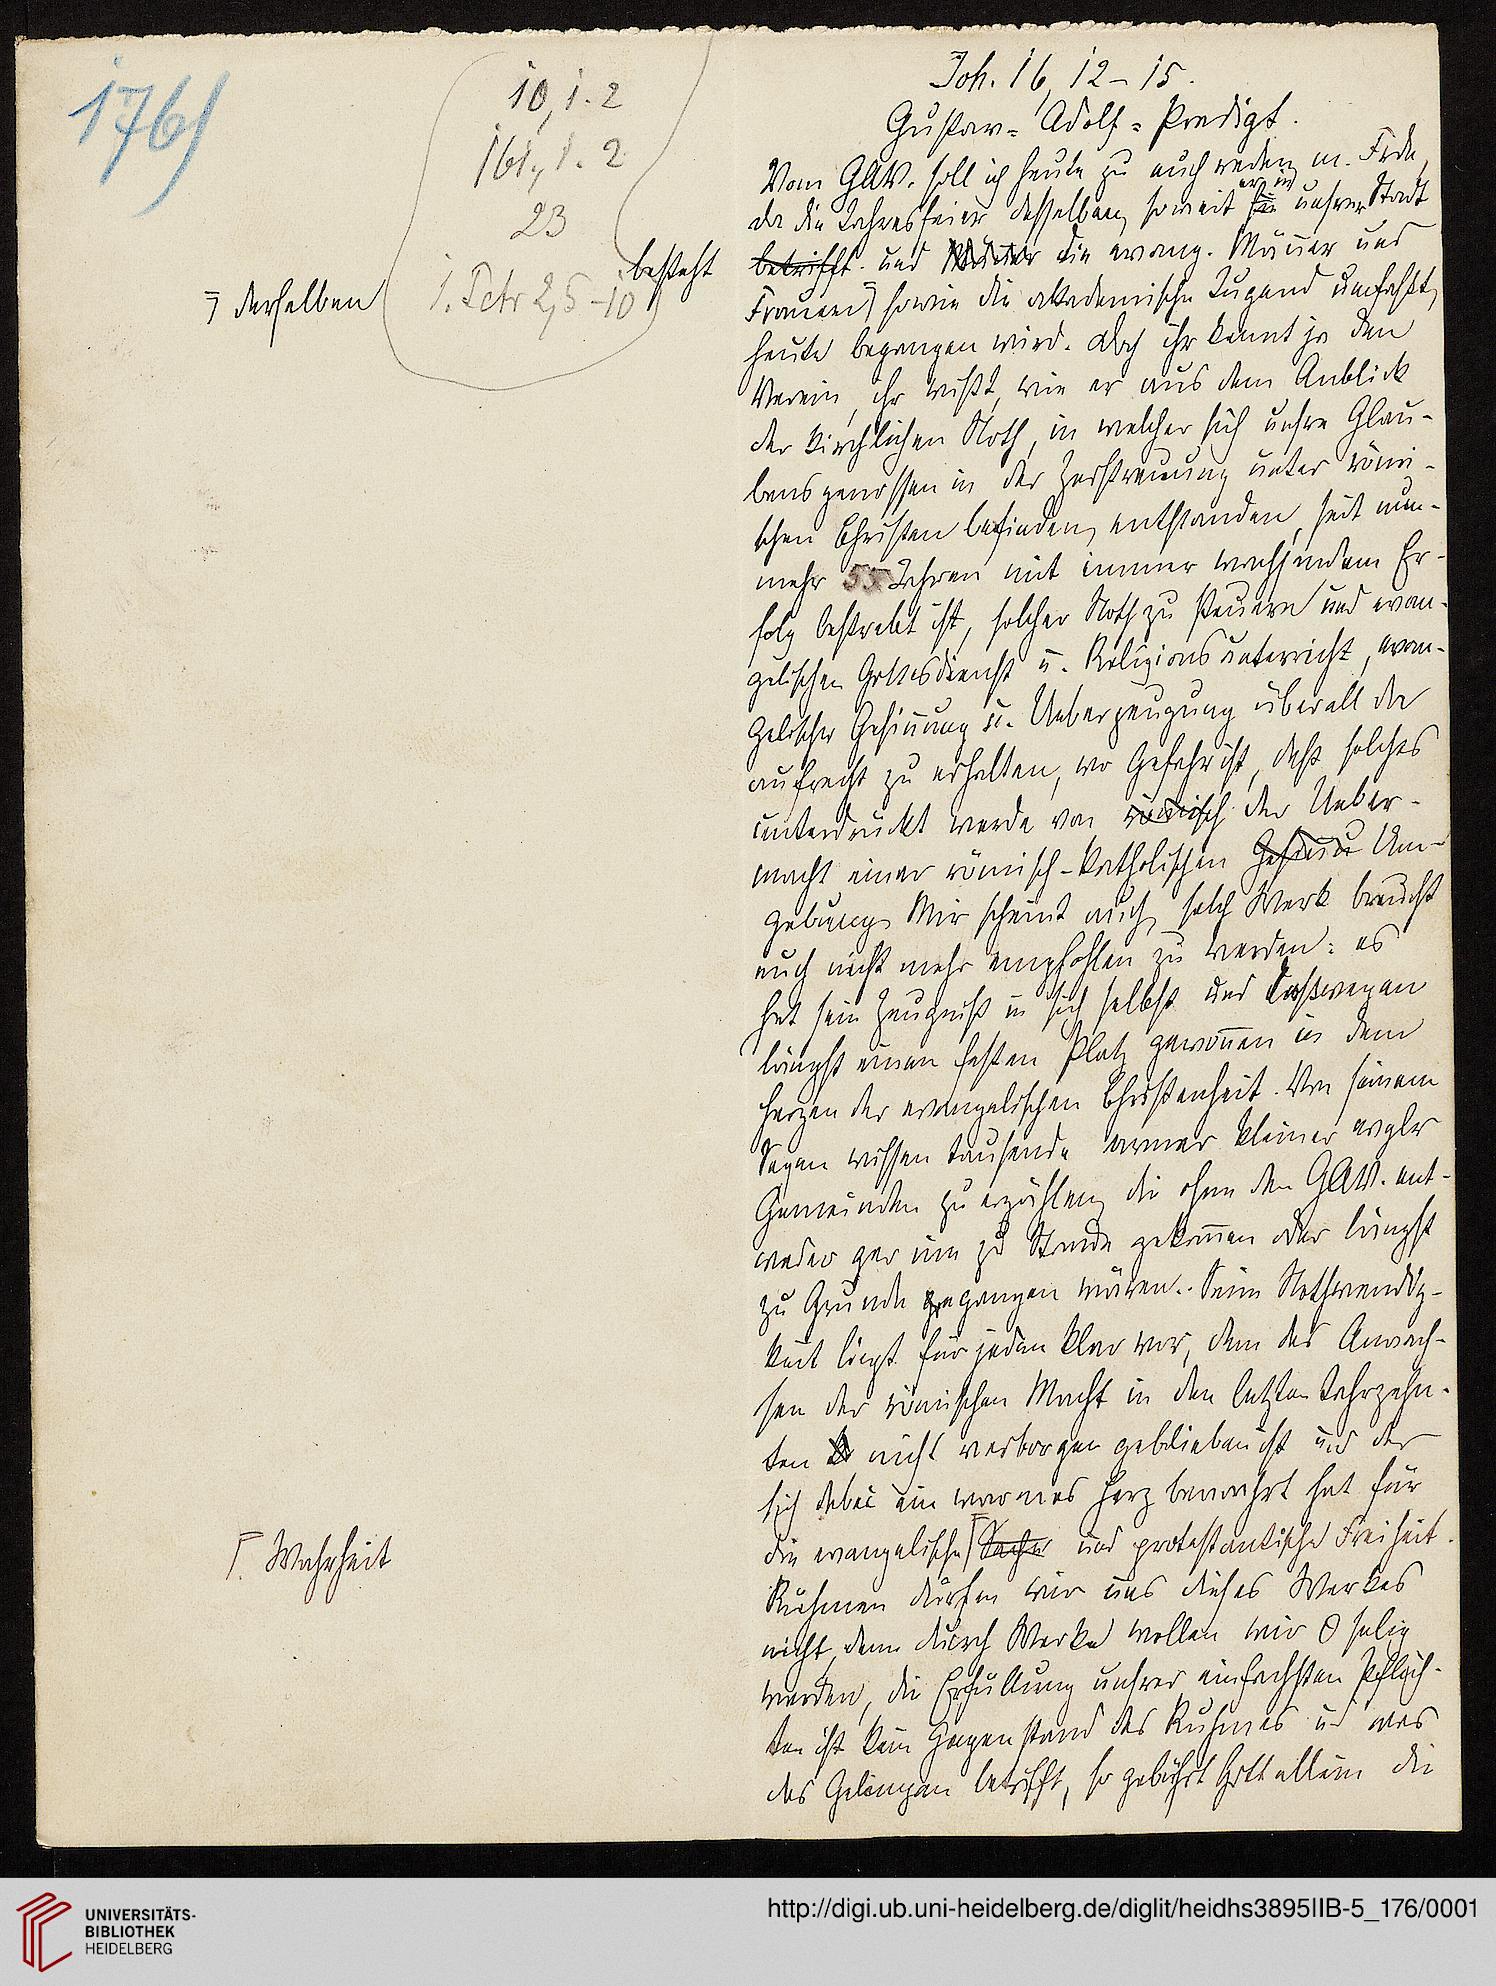 176)
10, 1. 2
161, 1. 2
23
1. Petr 2, 5-10
besteht
derselben
Joh. 16, 12-15.
Gustav-Adolf-Predigt.
Vom GAV. soll ich heute zu euch reden, m. Frde,
da die Jahresfeier desselben, soweit er in unsrer Stadt
betrifft. und Männer die evang. Männer und
Frauen sowie die akademische Jugend umfaßt,
heute begangen wird. Doch ihr kennt ja den
Verein, ihr wißt, wie er aus dem Anblick
der kirchlichen Noth, in welcher sich unsre Glau-
bensgenossen in der Zerstreuung unter römi-
schen Christen befinden, entstanden, seit nun-
mehr 55 Jahren mit immer wachsendem Er-
folg bestrebt ist, solcher Noth zu steuern und evan-
gelischen Gottesdienst u. Religionsunterricht, evan-
gelische Gesinnung u. Ueberzeugung überall da
aufrecht zu erhalten, wo Gefahr ist, daß solches
unterdrückt werde von römisch der Ueber-
macht einer römisch-katholischen Gesinnu Um-
gebung. Mir scheint auch, solch Werk braucht
euch nicht mehr empfohlen zu werden: es
hat sein Zeugniß in sich selbst und deßwegen
längst einen festen Platz gewonnen in dem
Herzen der evangelischen Christenheit. Von seinem
Segen wissen tausende armer kleiner evglr
Gemeinden zu erzählen, die ohne den GAV. ent-
weder gar nie zu Stande gekommen oder längst
zu Grunde gegangen wären. Seine Nothwendig-
keit liegt für jeden klar vor, dem das Anwach-
sen der römischen Macht in den letzten Jahrzehn-
ten nicht verborgen geblieben ist und der
sich dabei ein warmes Herz bewahrt hat für
die evangelische Sache und protestantische Freiheit.
Wahrheit
Rühmen dürfen wir uns dieses Werkes
nicht, denn durch Werke wollen wir selig
werden, die Erfüllung unsrer einfachsten Pflich-
ten ist kein Gegenstand des Ruhmes und was
das Gelingen betrifft, so gebührt Gott allein die
UNIVERSITÄTS-
BIBLIOTHEK
HEIDELBERG
http://digi.ub.uni-heidelberg.de/diglit/heidhs3895IIB-5_176/0001